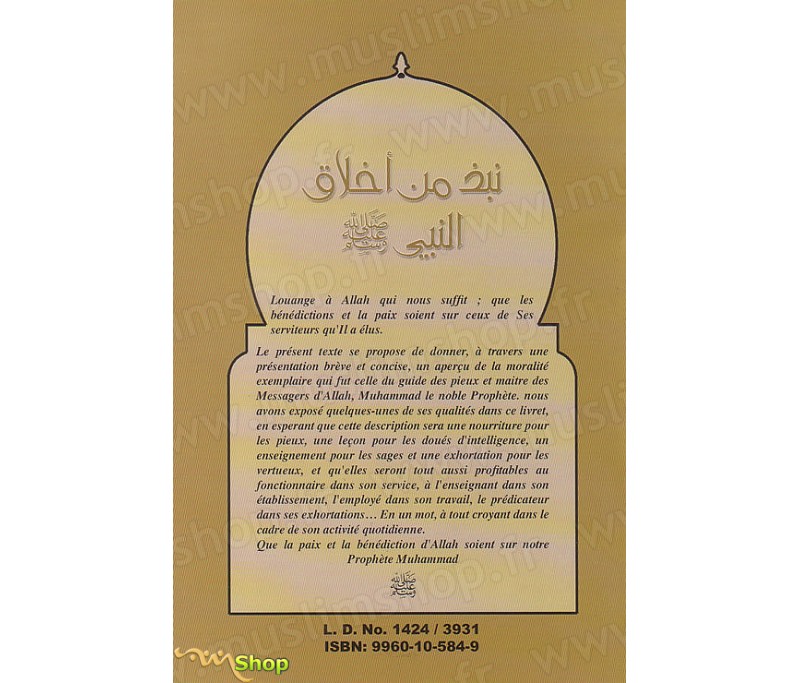 نبذ من أخلاق
النبي ﷺ
Louange à Allah qui nous suffit ; que les
bénédictions et la paix soient sur ceux de Ses
serviteurs qu'Il a élus.
Le présent texte se propose de donner, à travers une
présentation brève et concise, un aperçu de la moralité
exemplaire qui fut celle du guide des pieux et maitre des
Messagers d'Allah, Muhammad le noble Prophète. nous
avons exposé quelques-unes de ses qualités dans ce livret,
en esperant que cette description sera une nourriture pour
les pieux, une leçon pour les doués d'intelligence, un
enseignement pour les sages et une exhortation pour les
vertueux, et qu'elles seront tout aussi profitables au
fonctionnaire dans son service, à l'enseignant dans son
établissement, l'employé dans son travail, le prédicateur
dans ses exhortations… En un mot, à tout croyant dans le
cadre de son activité quotidienne.
Que la paix et la bénédiction d'Allah soient sur notre
Prophète Muhammad
ﷺ
L. D. No. 1424 / 3931
ISBN: 9960-10-584-9
Shop
www.muslimshop.fr